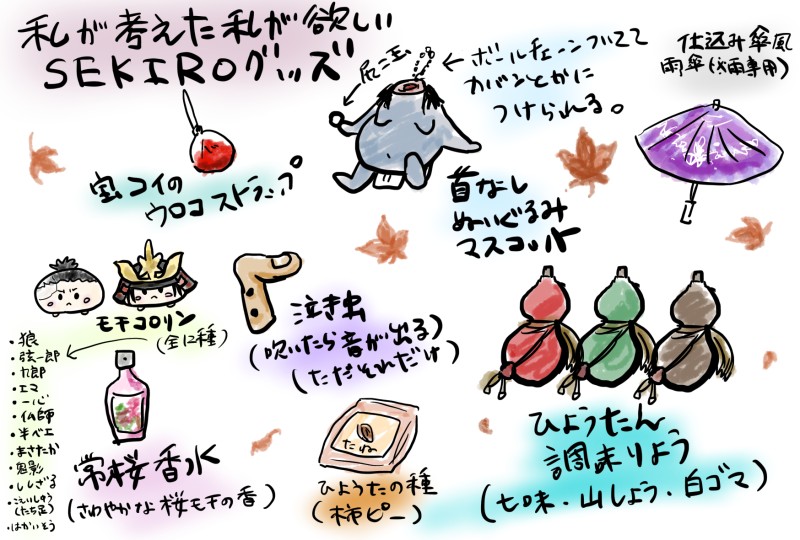 私が考えた私が欲しい
SEKIROグッズ
尻こ玉
←ボールチェーンついてて
カバンとかに
つけられる。
仕込み傘風
雨傘(晴雨兼用)
宝コイの
ウロコストラップ
首なし
ぬいぐるみ
マスコット
モチコロリン
(全12種)
・狼
・弦一郎
・九郎
・エマ
・一心
・仏師
・半ベエ
・まさたか
・鬼影
・ししざる
・こえいしゅう
(たち足)
・はかいそう
泣き虫
(吹いたら音が出る)
(ただそれだけ)
常桜香水
(さわやかな桜モチの香)
たね
ひょうたの種
(柿ピー)
ひょうたん
調味りょう
(七味・山しょう・白ゴマ)